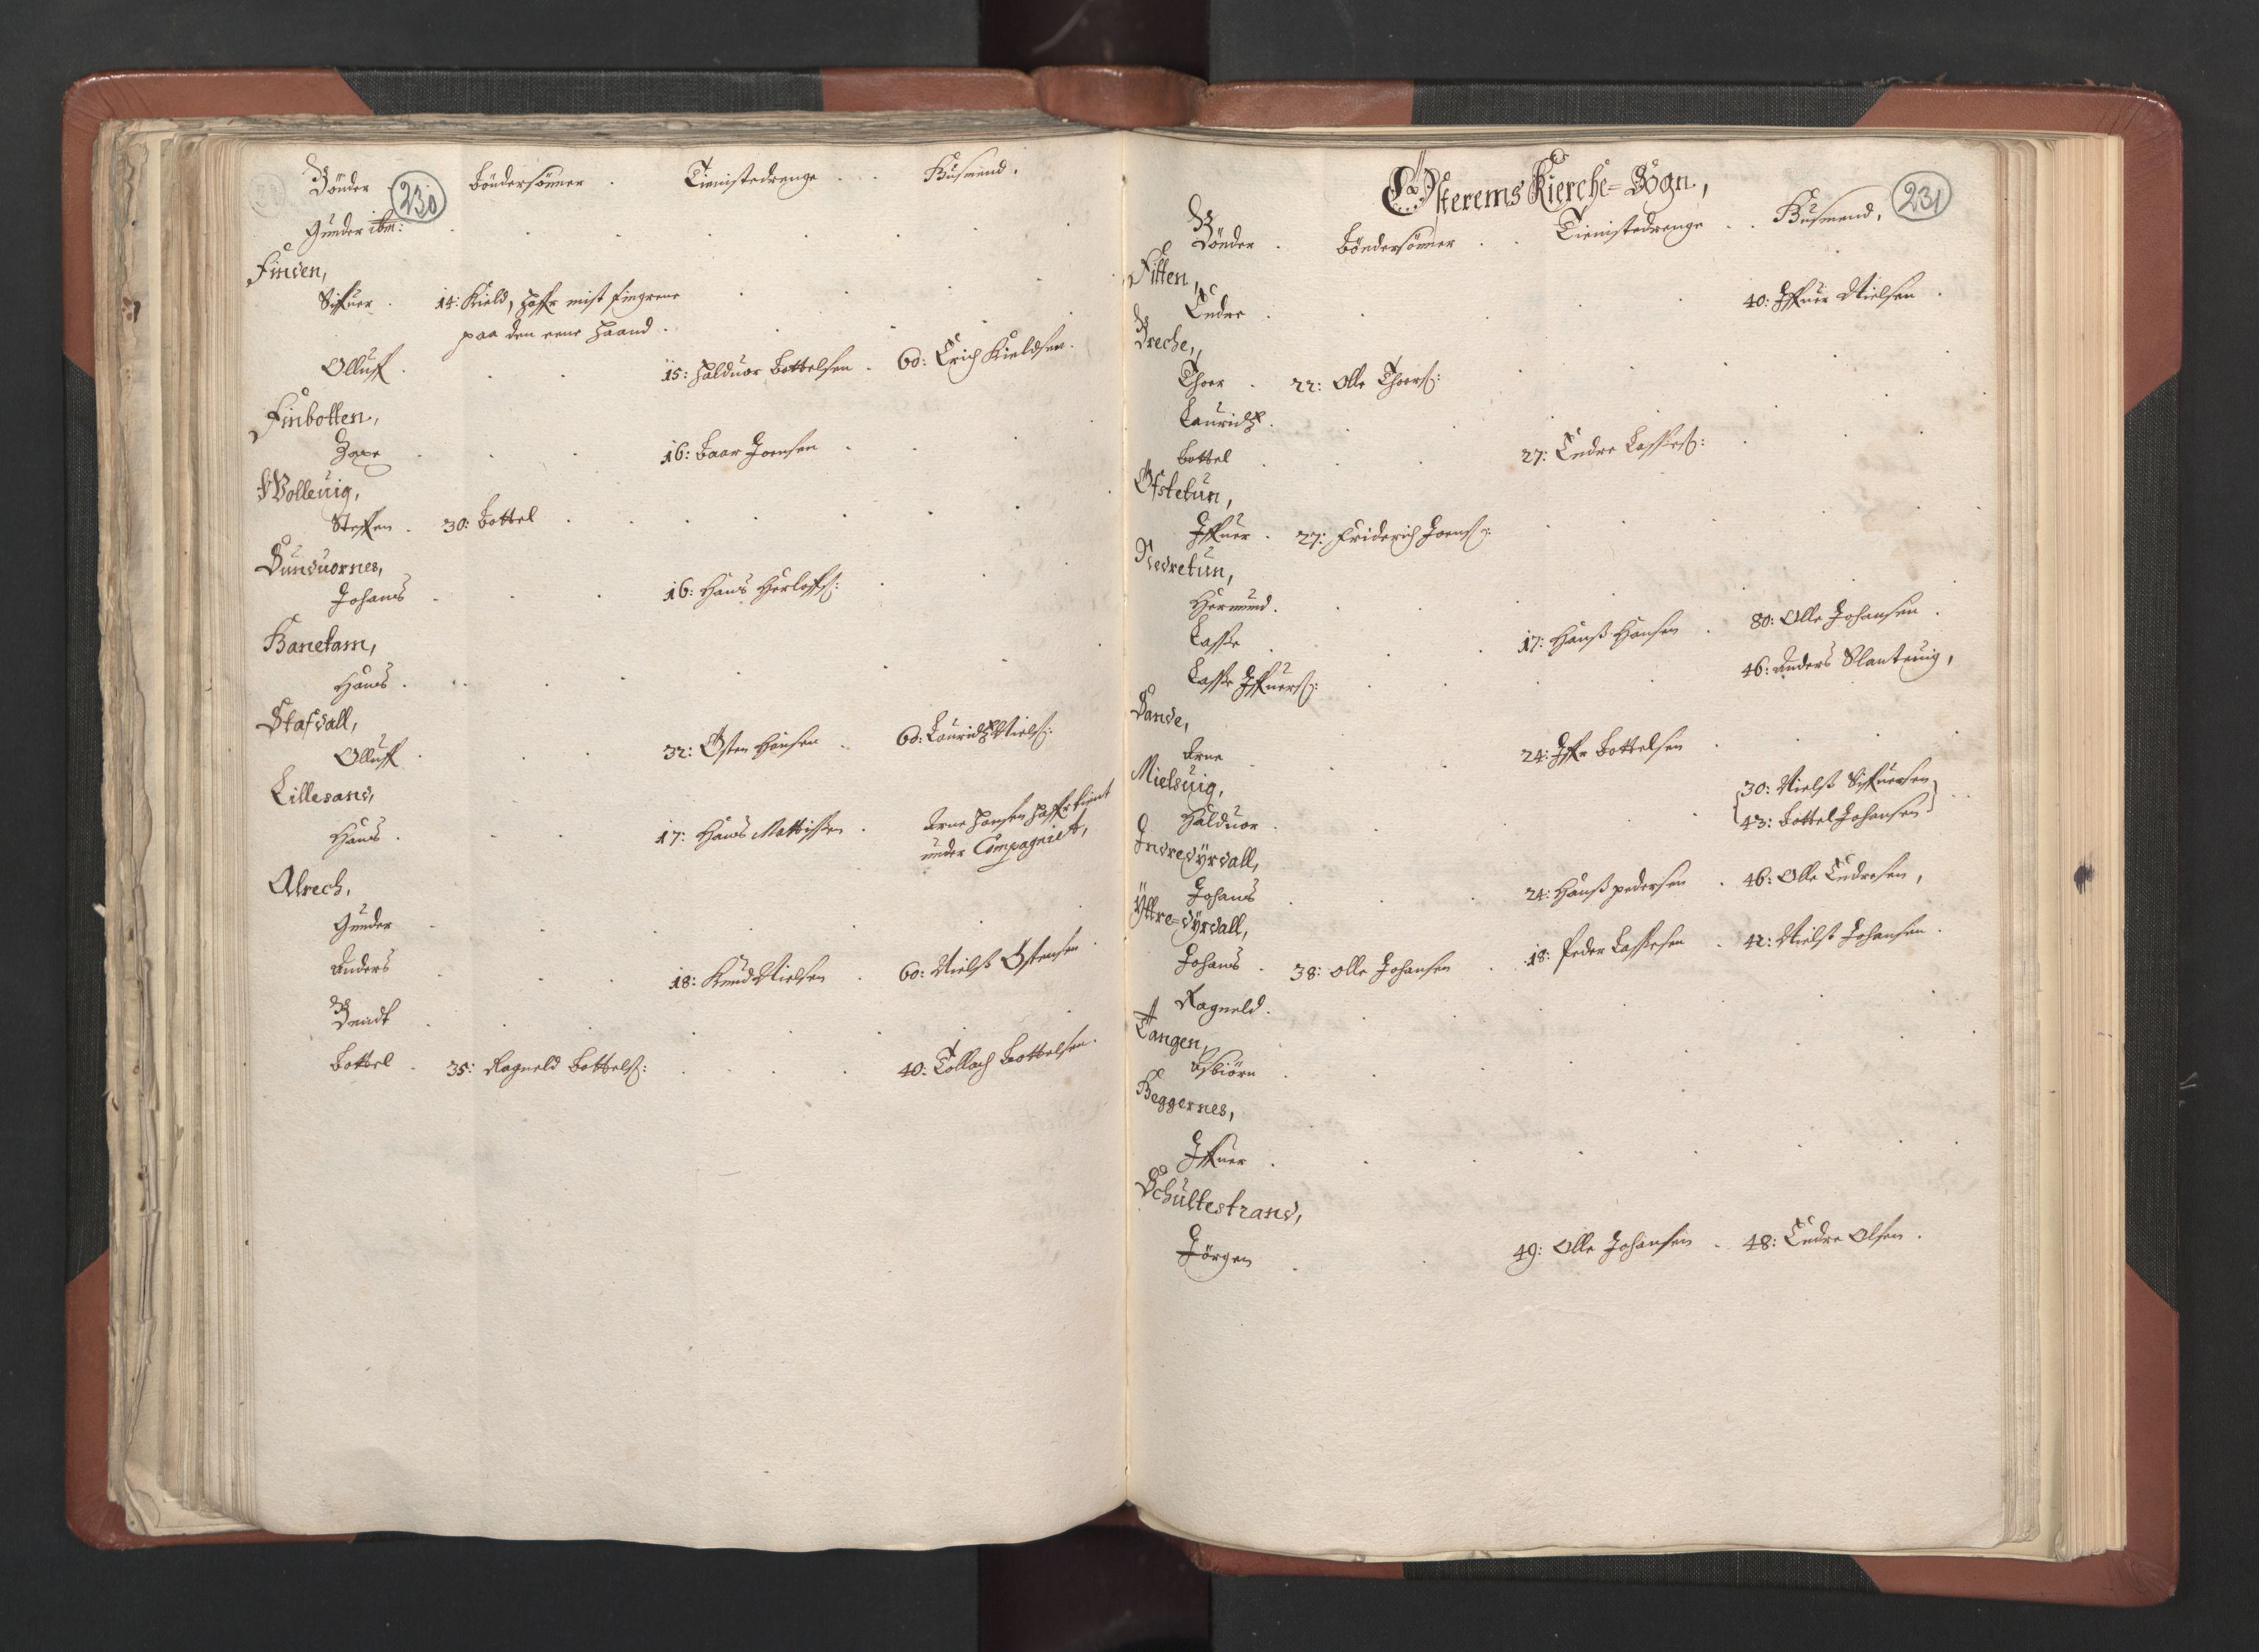 230
Bönder . böndersönner . Tienistedrenge . . Huusmend .
Gunder ibm:
Finden,
Siffuer . 14: Kield, haffr mist fingrene
paa den eene Haand .
Olluff . 15: Halduor bottelsen . 60: Erich Kieldsen .
Finbotten,
Zaxe . 16: baar Joensen .
Wolleuig,
Steffen . 30: bottel .
Sunduornes,
Johans . 16: Hans Herloffs:
Hanekam,
Hans .
Stafdall,
Olluff . 32: Østen Hansen . 60: Lauridtz Niels:
Lillesand,
Hans . 17: Hans Mattissen . Arne Hansen haffr tient
under Compagniet,
Alrech,
Gunder .
Anders . 18: Knud Nielsen . 60: Niels Østensen .
Bendt .
bottel . 35: Ragneld bottels: 40: Tollach bottelsen .
231
Østerems Kierche=Sogn,
Bönder . böndersönner . . Tienistedrenge . . Huusmend .
Fitten,
Endre . 40: Iffuer Nielsen .
Breche,
Thoer . 22: Olle Thoers:
Lauridtz .
bottel . 27: Endre Lasses:
Ofstetun,
Iffuer . 27: Friderich Joens:
Nedretun,
Hermund .
Lasse . 17: Hanss Hansen . 80: Olle Johansen .
Lasse Iffuers: 46: Anders Slanteuig,
Sande,
Arne . 24: Iffr bottelsen .
Mielsuig,
Halduor . 30: Nielss Siffuersen
43: bottel Johansen
Indredyrdall,
Johans . 24: Hanss pedersen . 46: Olle Endresen,
Yttre=dyrdall,
Johans . 38: olle Johansen . 18: Peder Lassesen . 42: Nielss Johansen .
Ragneld .
Tangen,
Asbiörn .
Heggernes,
Iffuer .
Schultestrand,
Jörgen . 49: Olle Johansen . 48: Endre Olsen .